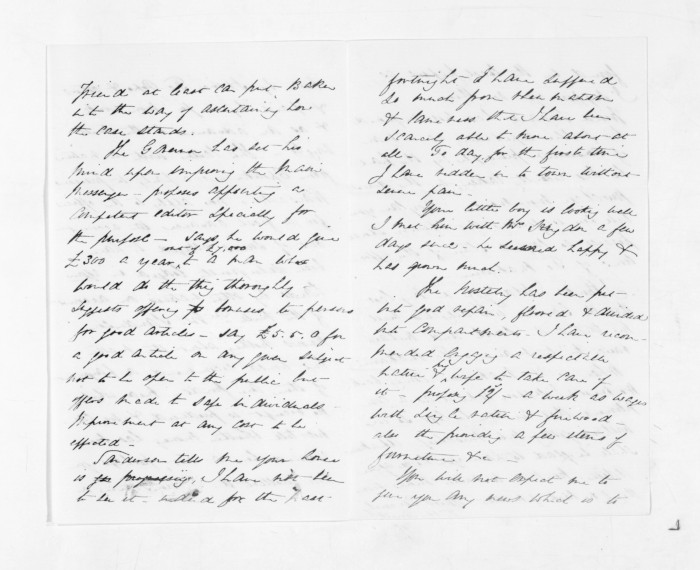 Friend at least can put Baker
into the way of ascertaining how
the case stands.
The Governor has set his
mind upon improving the Maori
Messenger - proposes appointing a
competent editor specially for
the purpose - Says, he would give
out of £7,000
£300 a year, to a man who
would do the thing thoroughly -
suggests offering bonuses to persons
for good articles - say £5.5.0 for
a good article on any given subject
not to be open to the public but
offers made to safe individuals -
Improvement at any cost to be
effected -
Sanderson tells me your house
is progressing, I have not been
to see it - indeed for the last
fortnight I have suffered
so much from rheumatism
& lameness that I have been
scarcely able to move about at
all - To day for the first time
I have ridden in to town without
severe pain -
Your little boy is looking well
I met him with Mrs a few
days since - he seemed happy &
has grown much.
The Hostelry has been put
into good repair, floored & divided
into compartments. I have recom-
mended engaging a respectable
native & his wife to take care of
it - proposing - a week as wages
with single ration & firewood -
also the providing a few items of
furniture &c -
You will not expect me to
give you any news which is to